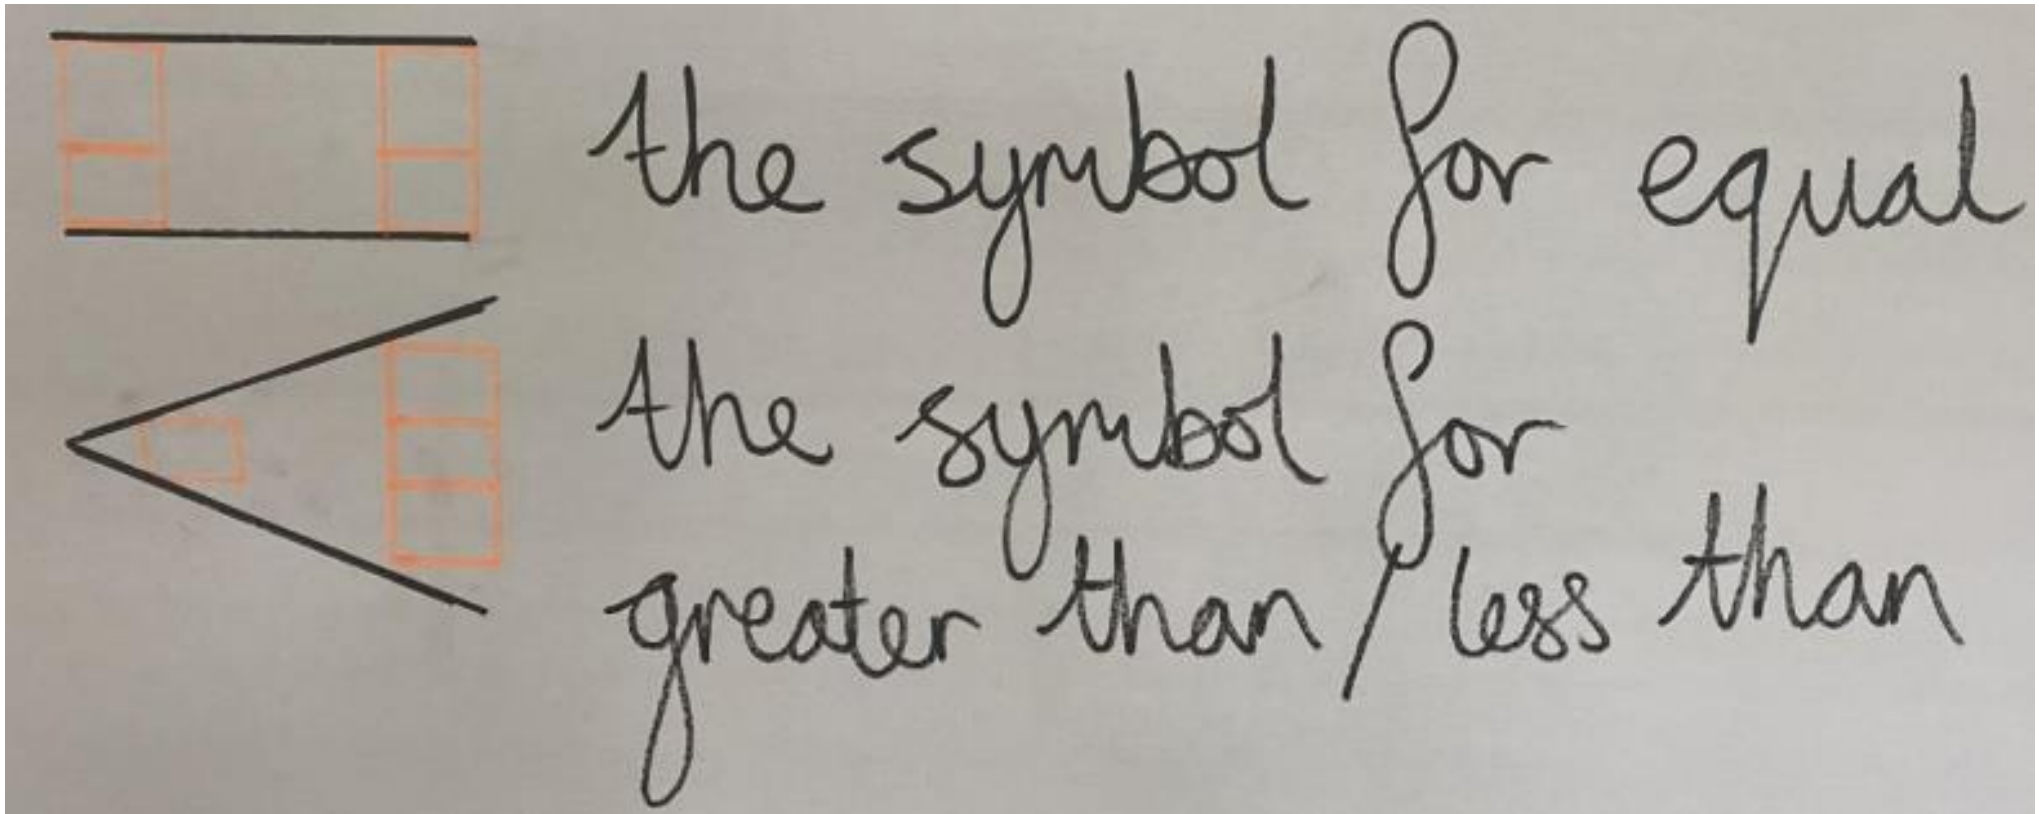 the symbol for equal
the symbol for
greater than / less than